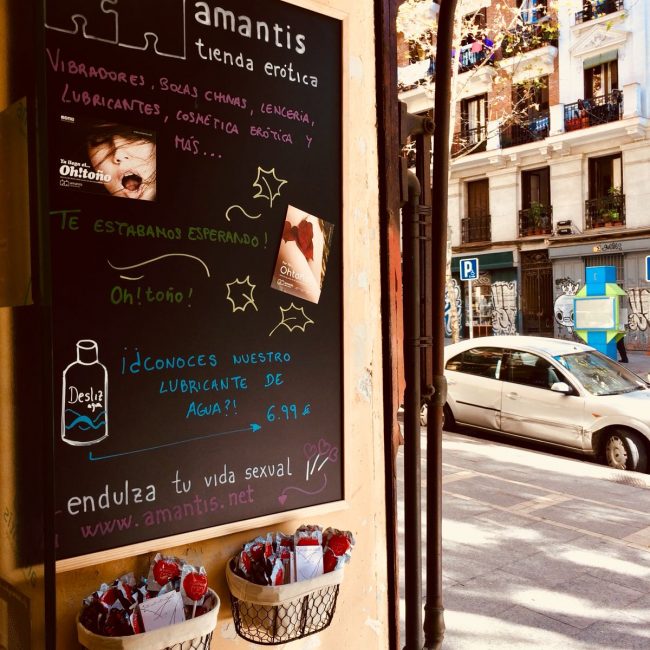 amantis
tienda erótica
VIBRADORES, BOLAS CHINAS, LENCERÍA,
LUBRICANTES, COSMÉTICA ERÓTICA Y
MÁS...
Ya llega el...
Oh!toño
TE ESTABAMOS ESPERANDO!
Oh!toño
Oh! toño!
¡¿CONOCES NUESTRO
LUBRICANTE DE
AGUA?!
6.99 €
Desliz
agua
endulza tu vida sexual
www.amantis.net
P